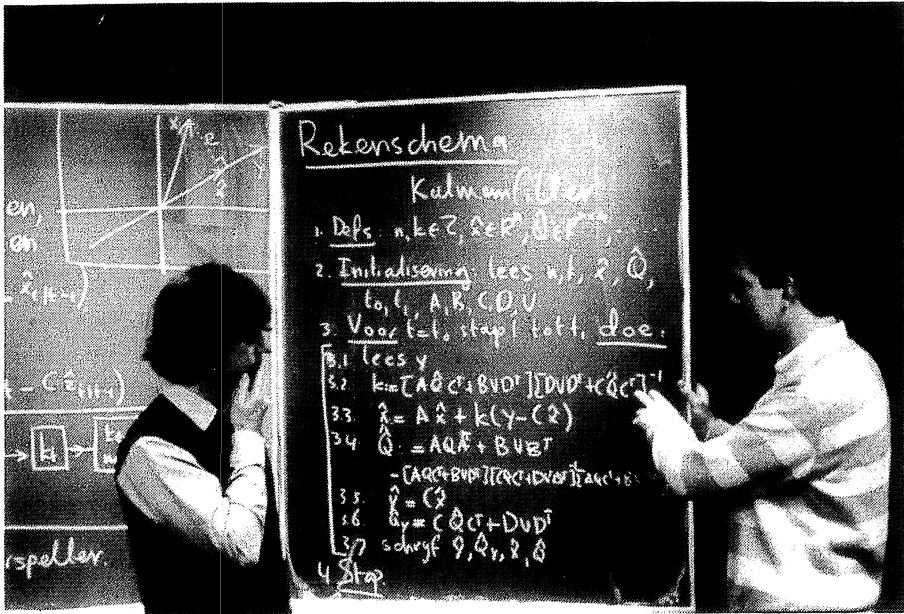 en,
en
ẑ t|t-1)
t - C ẑ t|t-1)
kt
rspeller.
x
e
ŷ
y
Rekenschema
Kalmanfilter
1. Defs: n,k∈Z, x̂∈Rⁿ, Q̂∈Rⁿˣⁿ, ...
2. Initialisering: lees n,k, x̂, Q̂,
t₀, t₁, A, B, C, D, V
3. Voor t=t₀ stap 1 tot t₁ doe:
3.1 lees y
3.2. k:=[AQ̂Cᵀ+BVDᵀ][DVDᵀ+CQ̂Cᵀ]⁻¹
3.3. x̂ = Ax̂ + k(y-Cx̂)
3.4 Q̂ := AQAᵀ + BVBᵀ
-[AQCᵀ+BVDᵀ][CQCᵀ+DVDᵀ]⁻¹[AQCᵀ+B
3.5. ŷ = Cx̂
3.6. Q̂y = CQ̂Cᵀ+DVDᵀ
3.7 schrijf ŷ, Q̂y, x̂, Q̂
4 Stop